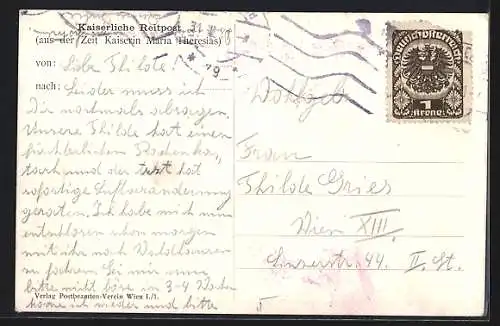 Kaiserliche Reitpost
(aus der Zeit Kaiserin Maria Theresias)
von: Liebe Thilde!
nach: Leider muss ich
Dir nochmals absagen.
Unsere Thilde hat einen
fürchterlichen Rachenka-
tarrh und der Arzt hat
sofortige Luftveränderung
geraten. Ich habe mich nun
entschlossen schon morgen
mit ihr nach
zu fahren. Sei mir nun
bitte nicht böse in 3-4 Wochen
komme ich wieder und bitte
Verlag Postbeamten-Verein Wien I./1.
Deutschösterreich
1
Krone
Wohlgeb.
Frau
Thilde Gries
Wien XIII.
Linzerstr. 44. II. St.